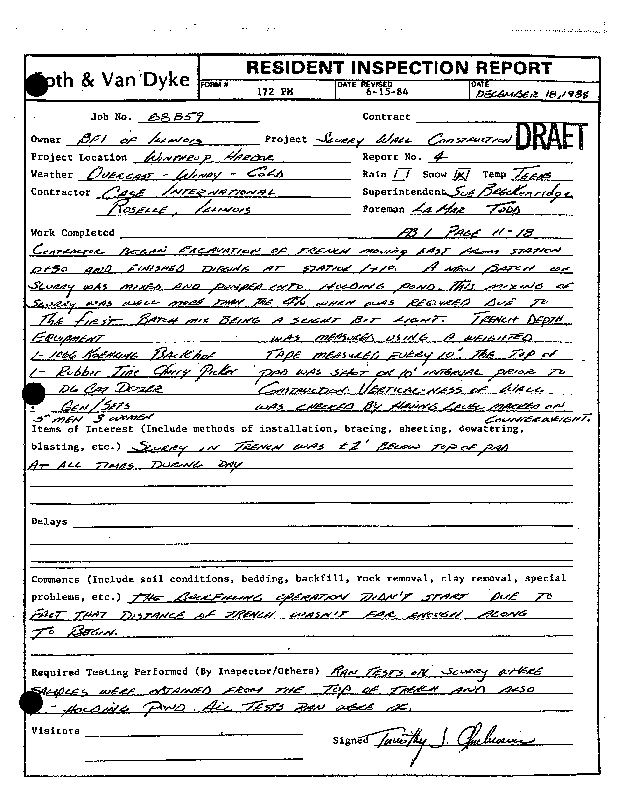 oth & Van Dyke
RESIDENT INSPECTION REPORT
FORM # 172 PM DATE REVISED 6-15-84 DATE DECEMBER 18, 1984
Job No. BBB59 Contract
DRAFT
Owner BFI OF ILLINOIS Project SLURRY WALL CONSTRUCTION
Project Location WINTHROP HARBOR Report No. 4
Weather OVERCAST - WINDY - COLD Rain [ ] Snow [X] Temp TEENS
Contractor CASE INTERNATIONAL Superintendent SUE BRECKENRIDGE
ROSELLE, ILLINOIS Foreman LA MAR TODD
Work Completed FB 1 PAGE 11-18
CONTRACTOR BEGAN EXCAVATION OF TRENCH MOVING EAST FROM STATION
0+50 AND FINISHED DIGGING AT STATION 1+10. A NEW BATCH OF
SLURRY WAS MIXED AND PUMPED INTO HOLDING POND. THIS MIXING OF
SLURRY WAS WELL MORE THAN THE 4% WHEN WAS REQUIRED DUE TO
THE FIRST BATCH MIX BEING A SLIGHT BIT LIGHT. TRENCH DEPTH
EQUIPMENT WAS MEASURED USING A WEIGHTED
1- 1066 KOEHRING BACKHOE TAPE MEASURED EVERY 10'. THE TOP OF
1- RUBBER TIRE CHERRY PICKER PAD WAS SHOT ON 10' INTERVAL PRIOR TO
D6 CAT DOZER CONSTRUCTION. VERTICAL-NESS OF WALL
GEN/SETS WAS CHECKED BY HAVING LEVEL MARKED ON
5 MEN 3 WOMEN COUNTERWEIGHT.
Items of Interest (Include methods of installation, bracing, sheeting, dewatering,
blasting, etc.) SLURRY IN TRENCH WAS ±2' BELOW TOP OF PAD
AT ALL TIMES DURING DAY
Delays
Comments (Include soil conditions, bedding, backfill, rock removal, clay removal, special
problems, etc.) THE BACKFILLING OPERATION DIDN'T START DUE TO
FACT THAT DISTANCE OF TRENCH WASN'T FAR ENOUGH ALONG
TO BEGIN.
Required Testing Performed (By Inspector/Others) RAN TESTS ON SLURRY WHERE
SAMPLES WERE OBTAINED FROM THE TOP OF TRENCH AND ALSO
- HOLDING POND. ALL TESTS RAN WERE OK.
Visitors
Signed Timothy J.